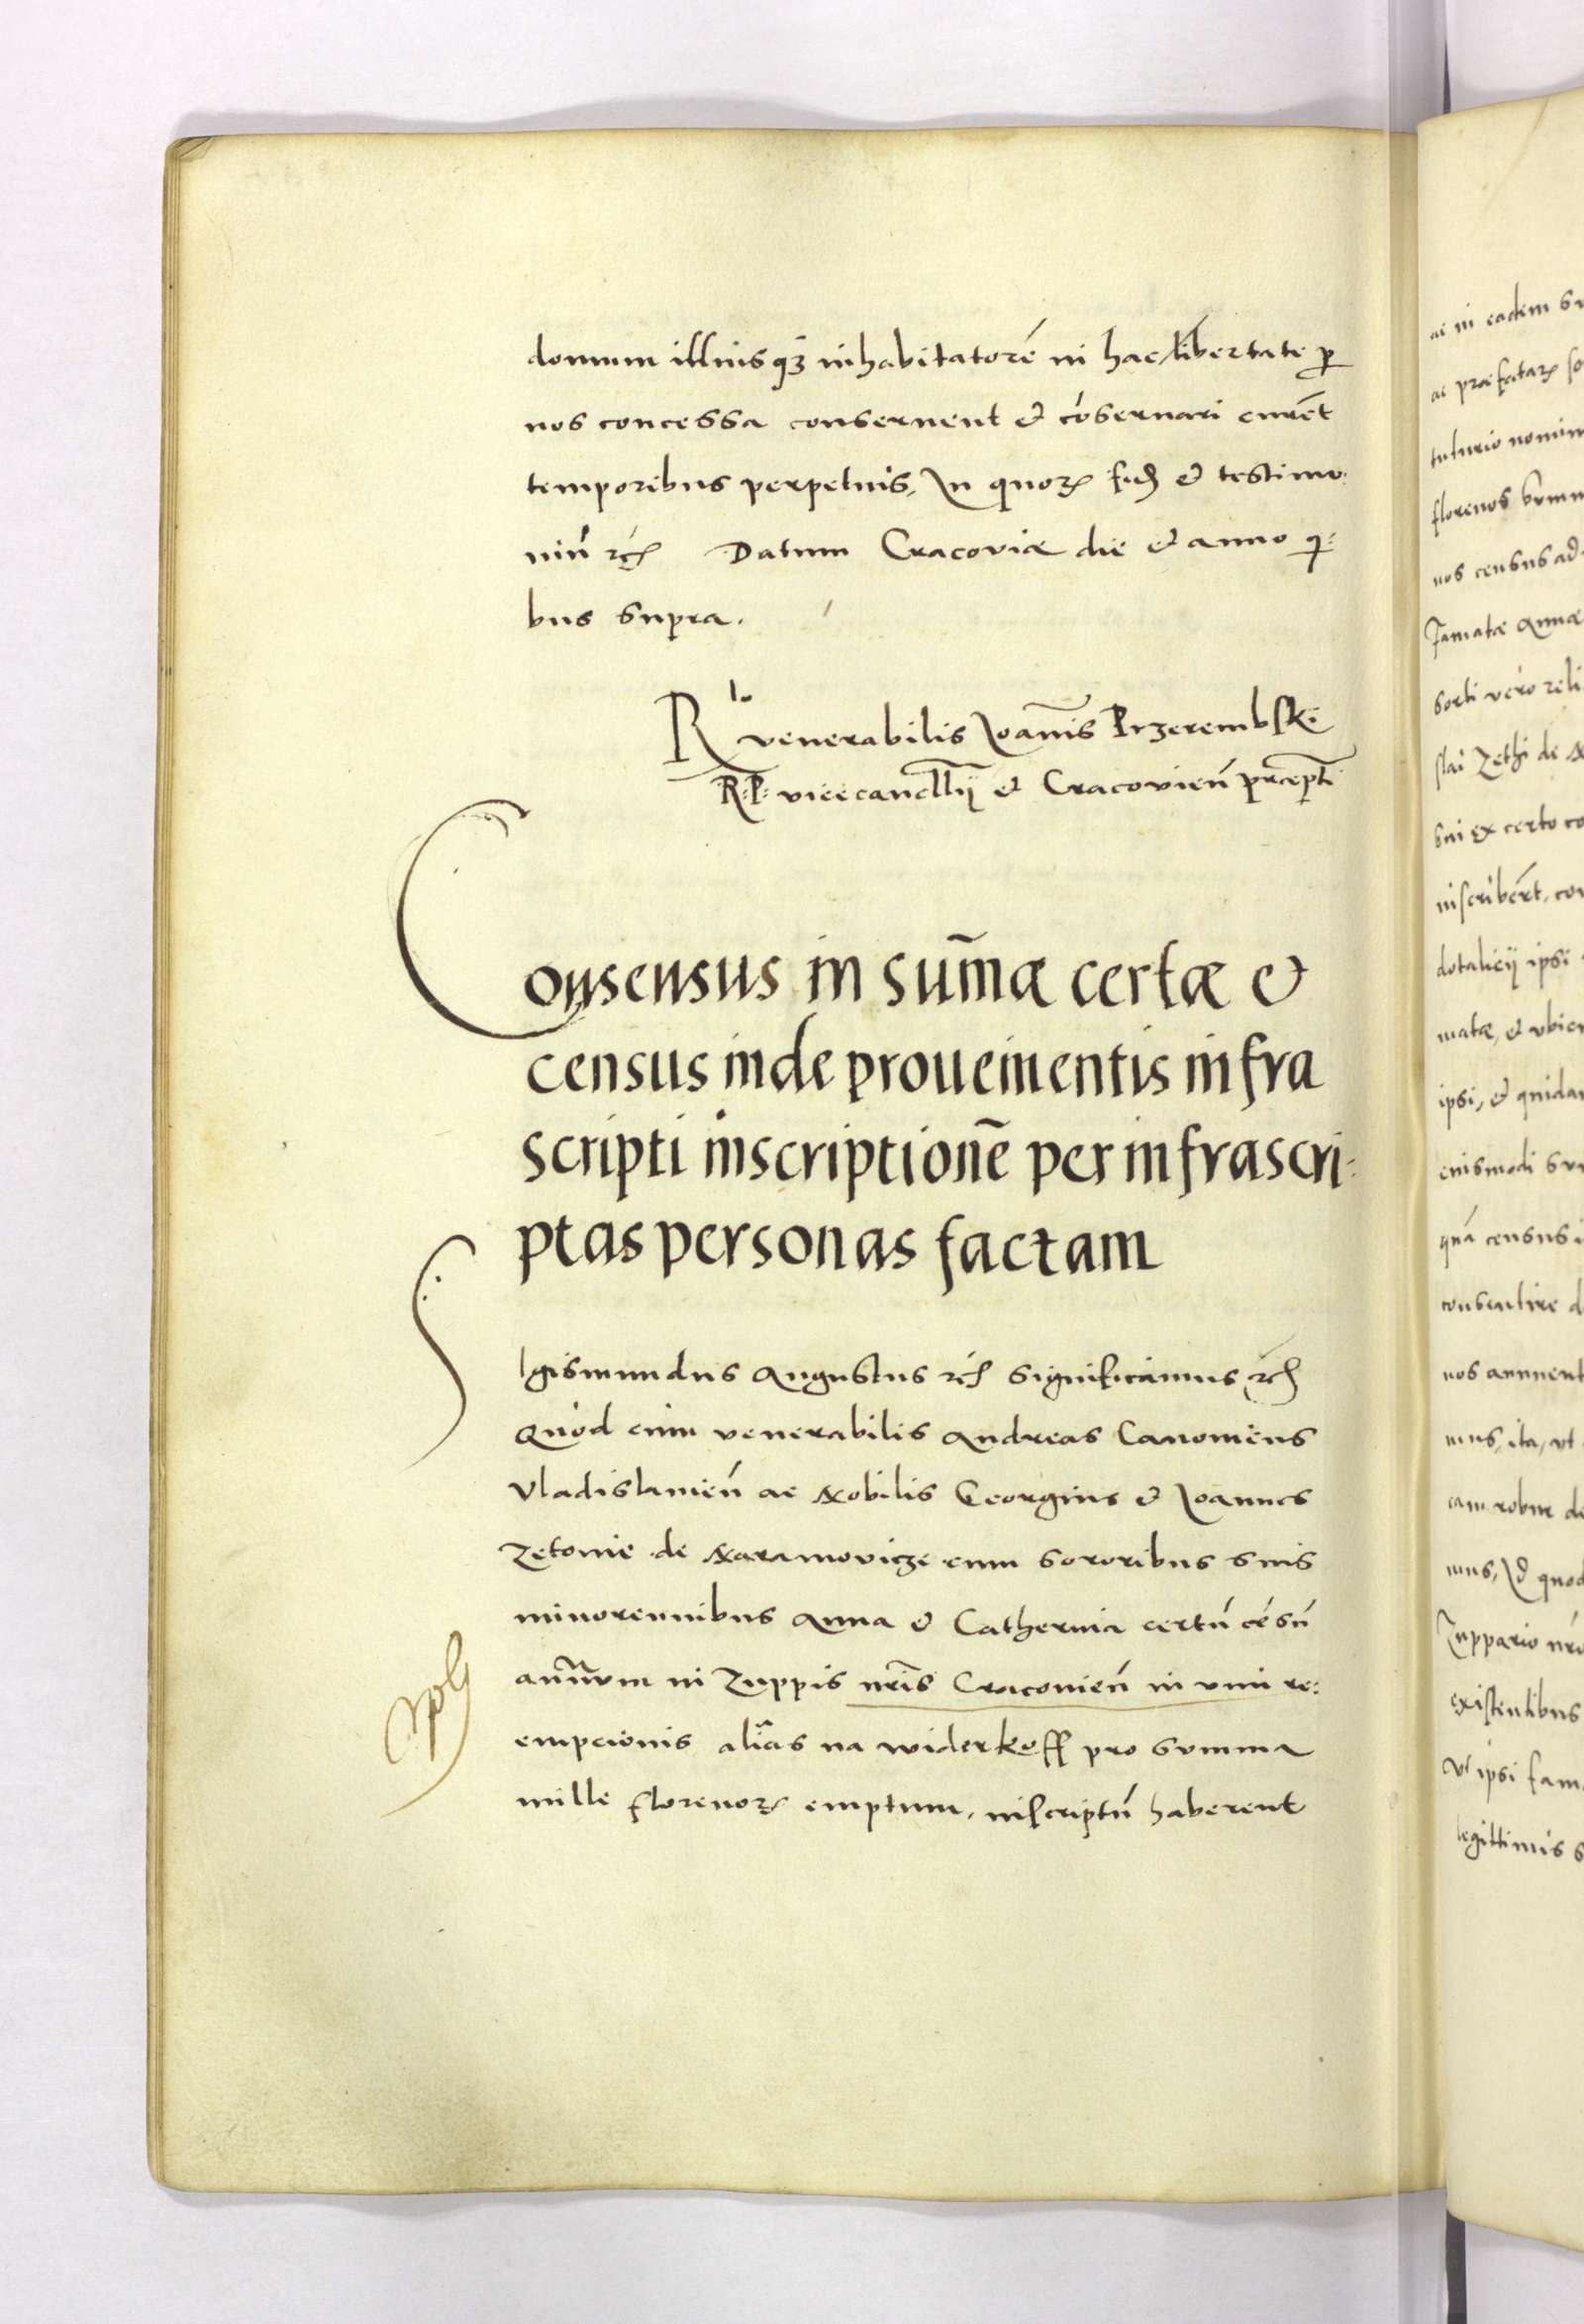 domum illiusq3 inhabitatorē in hac libertate p
nos concessa conseruent et cōseruari curēt
temporibus perpetuis, In quorꝝ fidē et testimo:
niū rcꝭ Datum Cracoviæ die et anno q:
bus supra.
Rlo venerabilis Joannis Przerembski
R: P: vicecancllrij et Cracovien̄ præpti
Consensus in sum̄æ certæ et
census inde proueinentis infra
scripti inscriptionē per infrascri:
ptas personas factam
Sigismundus Augustus rcꝭ significamus rcꝭ
Quod cum venerabilis Andreas Canonicus
Vladislauien̄ ac Nobilis Georgius et Joannes
Zetowie de Naramovicze cum sororibus suis
minorennibus Anna et Catherina certū cēsū
annuum in Zuppis nrīs Cracouien̄ in vim re:
empcionis alias na widerkoff pro summa
mille florenorꝝ emptum, inscriptū haberent
ac in eadem
ac præfatarꝝ
florenos
nos census ad
Famatæ Annæ
sorti vero reli
Zethi de
sui ex certo
inscribērt,
dotalicij ipsi
matæ, et
ipsi, et quidam
censusi
consentire
nos annuent
mus, ita, ut
cam robur de
mus, Id quod
Zuppario nrō
existentibus
Vt ipsi fam
legittimis